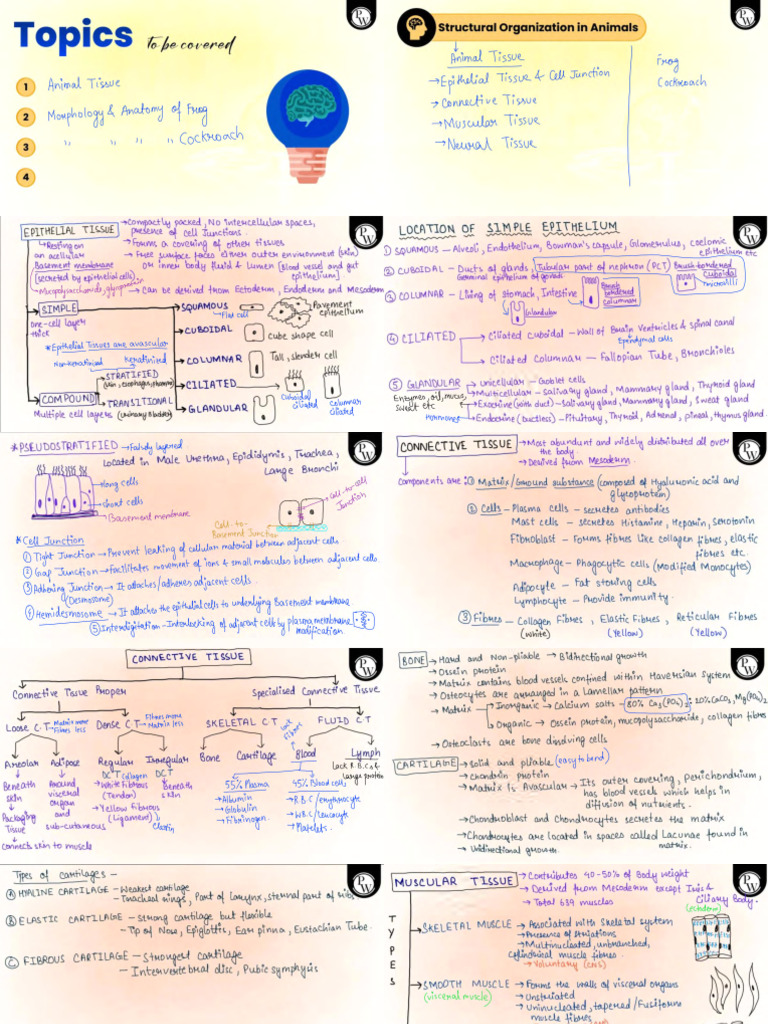 Topics
To be covered
1 Animal Tissue
2 Morphology & Anatomy of Frog
3 " " " " Cockroach
4
Structural Organization in Animals
Animal Tissue
→ Epithelial Tissue & Cell Junction
→ Connective Tissue
→ Muscular Tissue
→ Neural Tissue
Frog
Cockroach
EPITHELIAL TISSUE
→ Compactly packed, No intercellular spaces,
presence of cell Junctions.
→ Forms a covering of other tissues
→ Free surface faces either outer environment (skin)
or inner body fluid & lumen (Blood vessel and gut
epithelium)
→ Can be derived from Ectoderm, Endoderm and Mesoderm
→ Resting on
an acellular
Basement membrane
(secreted by epithelial cells)
→ Mucopolysaccharide, glycoprotein
SIMPLE
One-cell layer
thick
*Epithelial Tissues are avascular
Non-keratinised Keratinised
STRATIFIED
(skin, esophagus, pharynx)
COMPOUND
Multiple cell layers
TRANSITIONAL
(Urinary Bladder)
SQUAMOUS
→ flat cell
Pavement
epithelium
CUBOIDAL
Cube shape cell
COLUMNAR
Tall, slender cell
CILIATED
Cuboidal
ciliated
Columnar
ciliated
GLANDULAR
LOCATION OF SIMPLE EPITHELIUM
1) SQUAMOUS – Alveoli, Endothelium, Bowman's capsule, Glomerulus, coelomic
epithelium etc
2) CUBOIDAL – Ducts of glands, Tubular part of nephron (PCT)
Germinal epithelium of gonads
Brush bordered
cuboidal
microvilli
3) COLUMNAR – Lining of Stomach, Intestine
Glandular
Brush
bordered
columnar
4) CILIATED
→ Ciliated cuboidal – Wall of Brain Ventricles & spinal canal
Ependymal cells
→ Ciliated Columnar – Fallopian Tube, Bronchioles
5) GLANDULAR
→ unicellular – Goblet cells
→ Multicellular – Salivary gland, Mammary gland, Thyroid gland
Enzymes, oil, mucus,
sweat etc
→ Exocrine (with duct) – Salivary gland, Mammary gland, Sweat gland
Hormones
→ Endocrine (ductless) – Pituitary, Thyroid, Adrenal, pineal, thymus gland.
*PSEUDOSTRATIFIED → Falsely layered
Located in Male Urethra, Epididymis, Trachea,
Large Bronchi
→ long cells
→ short cells
→ Basement membrane
Cell-to-cell
Junction
Cell-to-
Basement Junction
*Cell Junction
1) Tight Junction → Prevent leaking of cellular material between adjacent cells
2) Gap Junction → Facilitates movement of ions & small molecules between adjacent cells
3) Adhering Junction → It attaches/adheres adjacent cells.
(Desmosome)
4) Hemidesmosome → It attaches the epithelial cells to underlying Basement membrane
5) Interdigitation – Interlocking of adjacent cell by plasma membrane
modification
CONNECTIVE TISSUE
→ Most abundant and widely distributed all over
the body.
→ Derived from Mesoderm.
Components are :
1) Matrix/Ground substance (composed of Hyaluronic acid and
glycoprotein)
2) Cells – Plasma cells – secretes antibodies
Mast cells – secretes Histamine, Heparin, Serotonin
Fibroblast – Forms fibres like collagen fibres, elastic
fibres etc.
Macrophage – Phagocytic cells (Modified Monocytes)
Adipocyte – Fat storing cells
Lymphocyte – Provide immunity.
3) Fibres – Collagen Fibres, Elastic Fibres, Reticular Fibres
(White) (Yellow) (Yellow)
CONNECTIVE TISSUE
Connective Tissue Proper
Specialised Connective Tissue
Loose C.T → Matrix more
Fibres less
Dense C.T → Fibres more
Matrix less
SKELETAL C.T
Lack
Fibres
FLUID C.T
Areolar
Beneath
skin
Packaging
Tissue
connects skin to muscle
Adipose
Around
visceral
organ
and
sub-cutaneous
Regular
DCT
Collagen
→ White Fibrous
(Tendon)
→ Yellow Fibrous
(Ligament)
Elastin
Irregular
DCT
Beneath
skin
Bone
Cartilage
Blood
55% Plasma
→ Albumin
→ Globulin
→ Fibrinogen
45% Blood cells
→ R.B.C/erythrocyte
→ W.B.C/leucocyte
→ Platelets.
Lymph
Lack R.B.C &
Large protein
BONE
→ Hard and Non-pliable → Bidirectional growth
→ Ossein protein
→ Matrix contains blood vessels confined within Haversian system
→ Osteocytes are arranged in a Lamellar pattern
→ Matrix
→ Inorganic → Calcium salts → 80% Ca3(PO4)2; 10% CaCO3, Mg3(PO4)2
→ Organic → Ossein protein, mucopolysaccharide, collagen fibres
→ Osteoclasts are bone dissolving cells
CARTILAGE
→ Solid and pliable (easy to bend)
→ Chondrin protein
→ Matrix is Avascular → Its outer covering, perichondrium,
has blood vessels which helps in
diffusion of nutrients.
→ Chondroblast and Chondrocytes secretes the matrix
→ Chondrocytes are located in spaces called Lacunae found in
matrix.
→ Unidirectional growth.
Types of cartilages –
A) HYALINE CARTILAGE – Weakest cartilage
– Tracheal rings, Part of larynx, sternal part of ribs
B) ELASTIC CARTILAGE – strong cartilage but flexible
– Tip of Nose, Epiglottis, Ear pinna, Eustachian Tube.
C) FIBROUS CARTILAGE – Strongest cartilage
– Intervertebral disc, Pubic symphysis
MUSCULAR TISSUE
→ Contributes 40-50% of Body weight
→ Derived from Mesoderm except Iris &
Ciliary Body.
(ectoderm)
→ Total 639 muscles
TYPES
SKELETAL MUSCLE
→ Associated with Skeletal system
→ Presence of Striations
→ Multinucleated, unbranched,
Cylindrical muscle fibres.
→ Voluntary (CNS)
SMOOTH MUSCLE
(visceral muscle)
→ Forms the walls of visceral organs
→ Unstriated
→ Uninucleated, tapered/Fusiform
muscle fibres